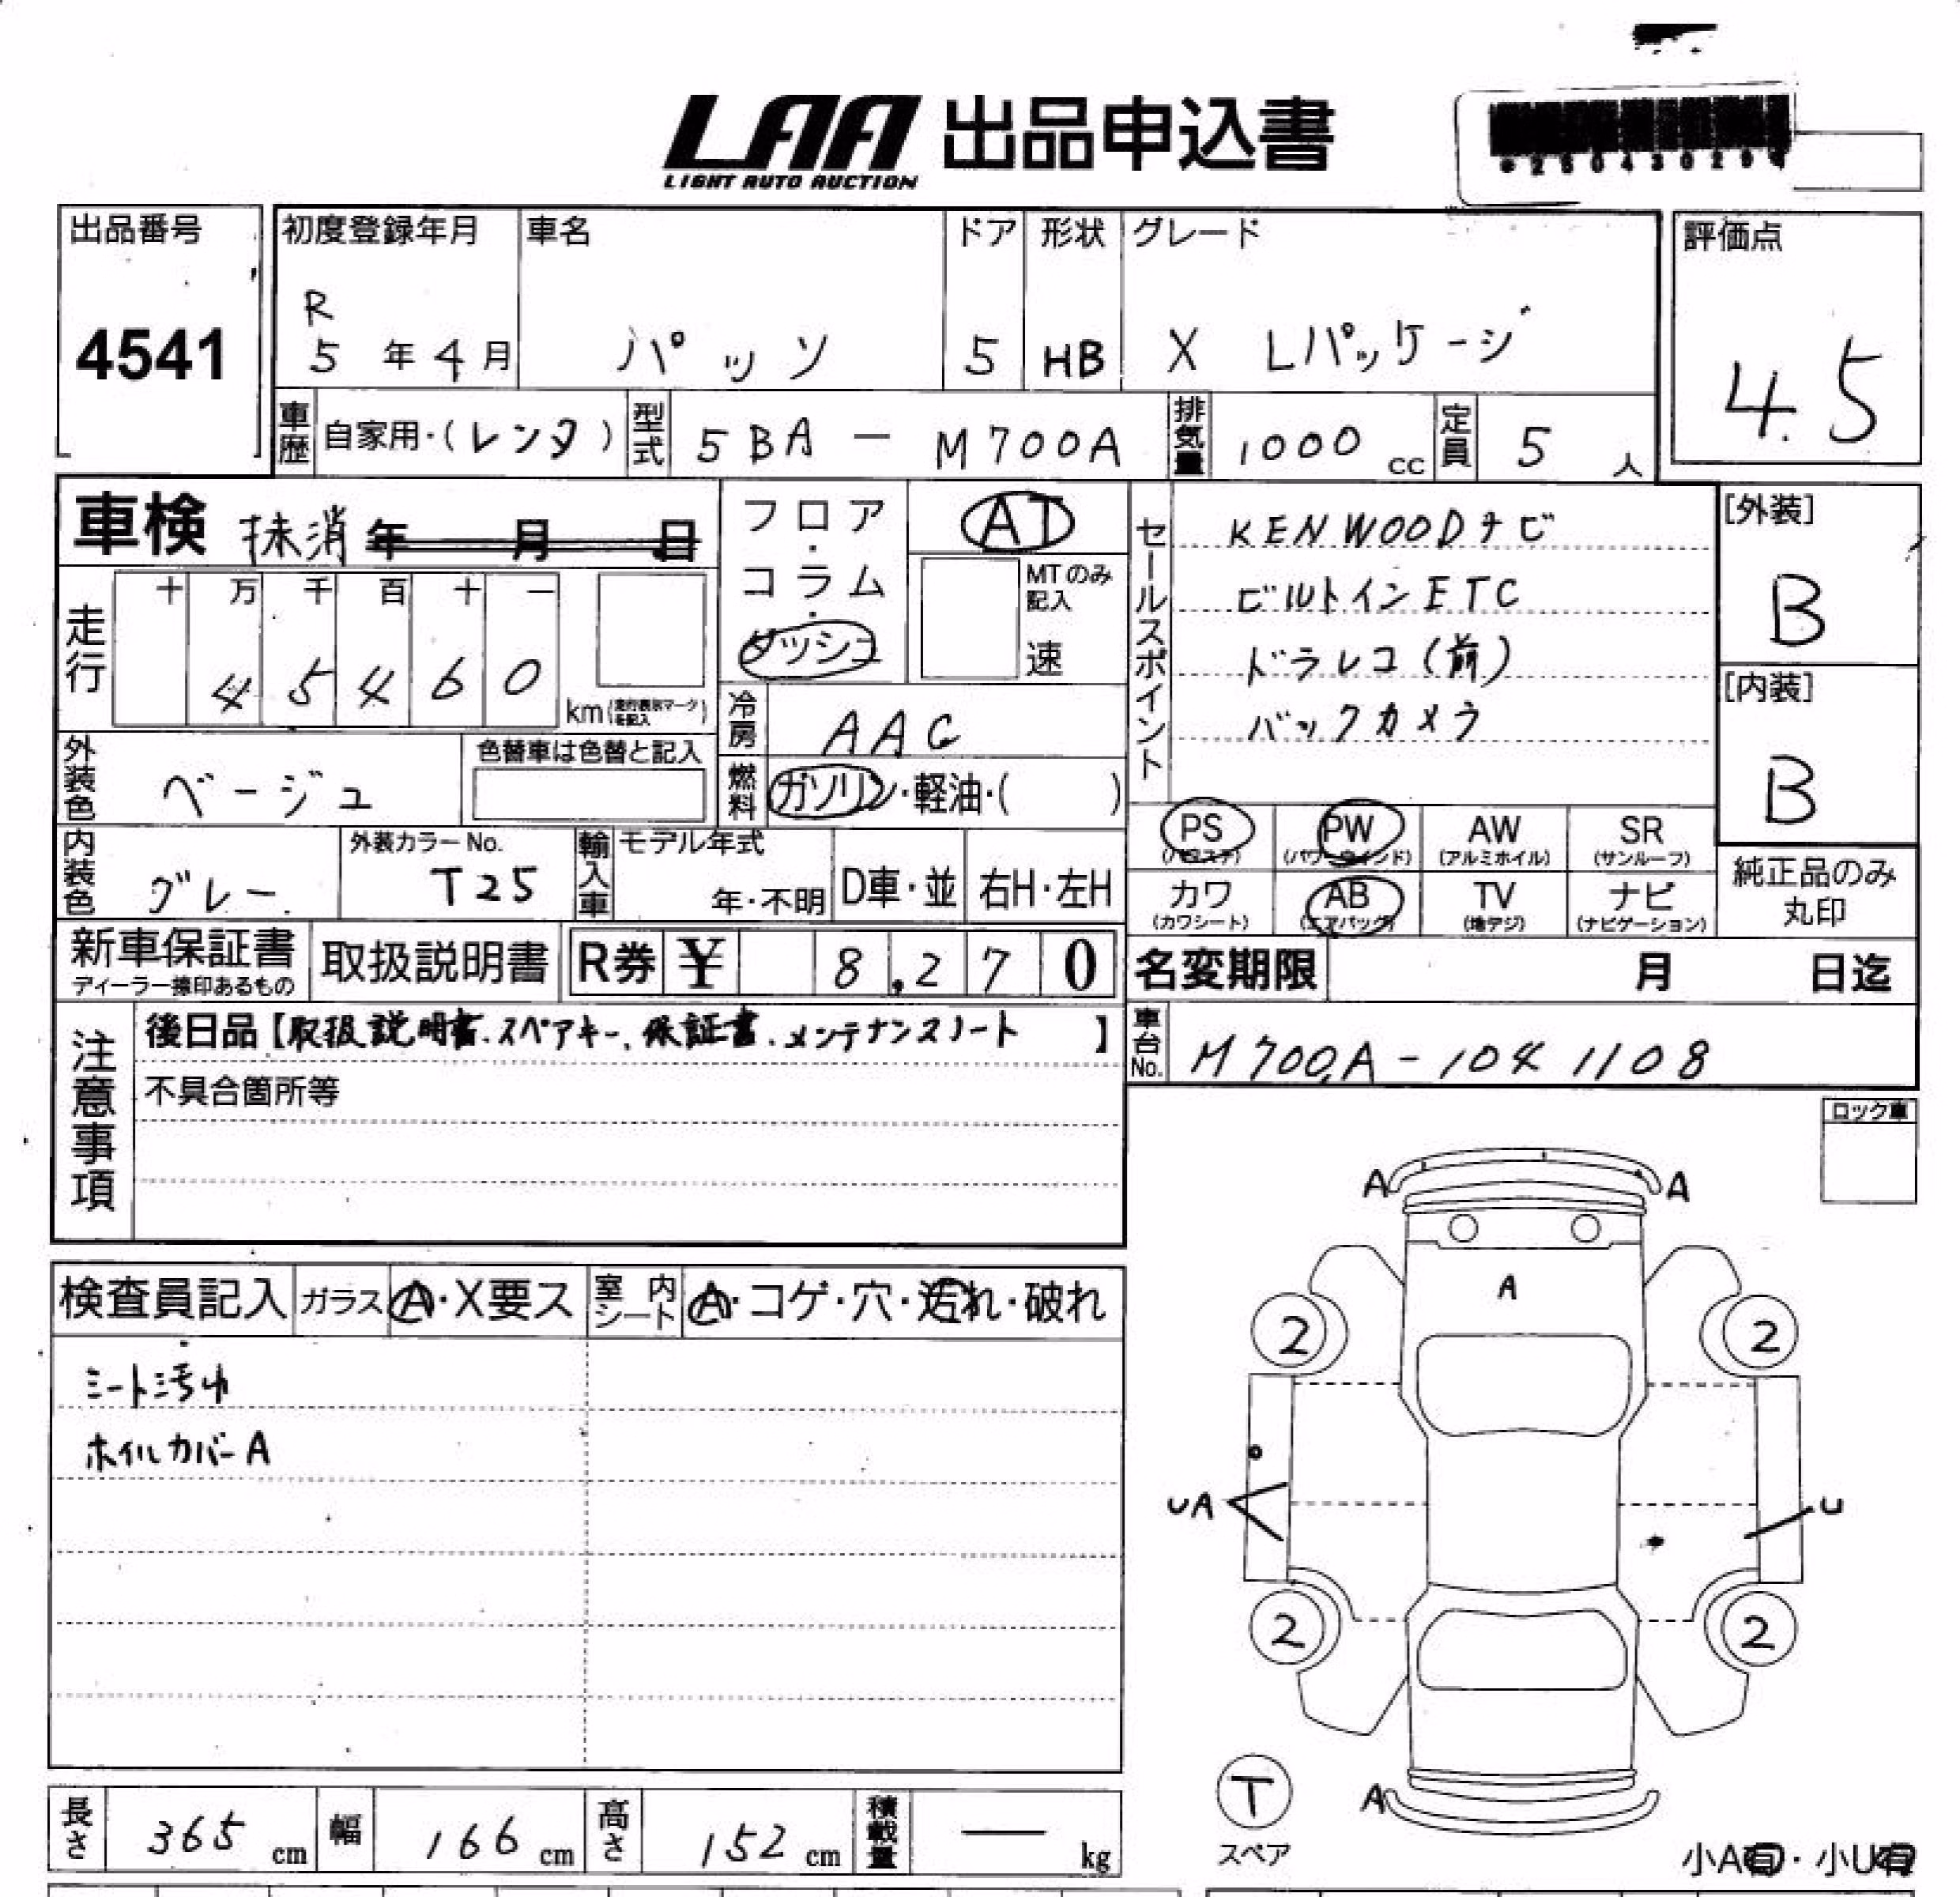 LAA 出品申込書
LIGHT AUTO AUCTION
出品番号
4541
初度登録年月
R
5 年 4 月
車名
パッソ
ドア
5
形状
HB
グレード
X Lパッケージ
評価点
4.5
車歴 自家用・(レンタ)
型式 5BA - M700A
排気量 1000 cc
定員 5 人
車検 抹消 年 月 日
フロア・コラム・ダッシュ
AT
MTのみ記入
速
走行
十 万 千 百 十 一
4 5 4 6 0
km
冷房 AAC
燃料 ガソリン・軽油・( )
外装色 ベージュ
色替車は色替と記入
内装色 グレー
外装カラーNo.
T25
輸入車
モデル年式
年・不明
D車・並
右H・左H
セールスポイント
KENWOODナビ
ビルトインETC
ドラレコ(前)
バックカメラ
[外装]
B
[内装]
B
PS
(パワステ)
PW
(パワーウインド)
AW
(アルミホイル)
SR
(サンルーフ)
カワ
(カワシート)
AB
(エアバッグ)
TV
(地デジ)
ナビ
(ナビゲーション)
純正品のみ
丸印
新車保証書
ディーラー捺印あるもの
取扱説明書
R券 ¥ 8,270
名変期限 月 日迄
車台No. M700A-1041108
注意事項
後日品【取扱説明書.スペアキー、保証書.メンテナンスノート】
不具合箇所等
ロック車
検査員記入
ガラス A・X要ス
室内シート A・コゲ・穴・汚れ・破れ
シート汚れ
ホイルカバーA
A A
A
2 2
UA U
2 2
T
スペア
A
小A有・小U有
長さ 365 cm
幅 166 cm
高さ 152 cm
積載量 — kg